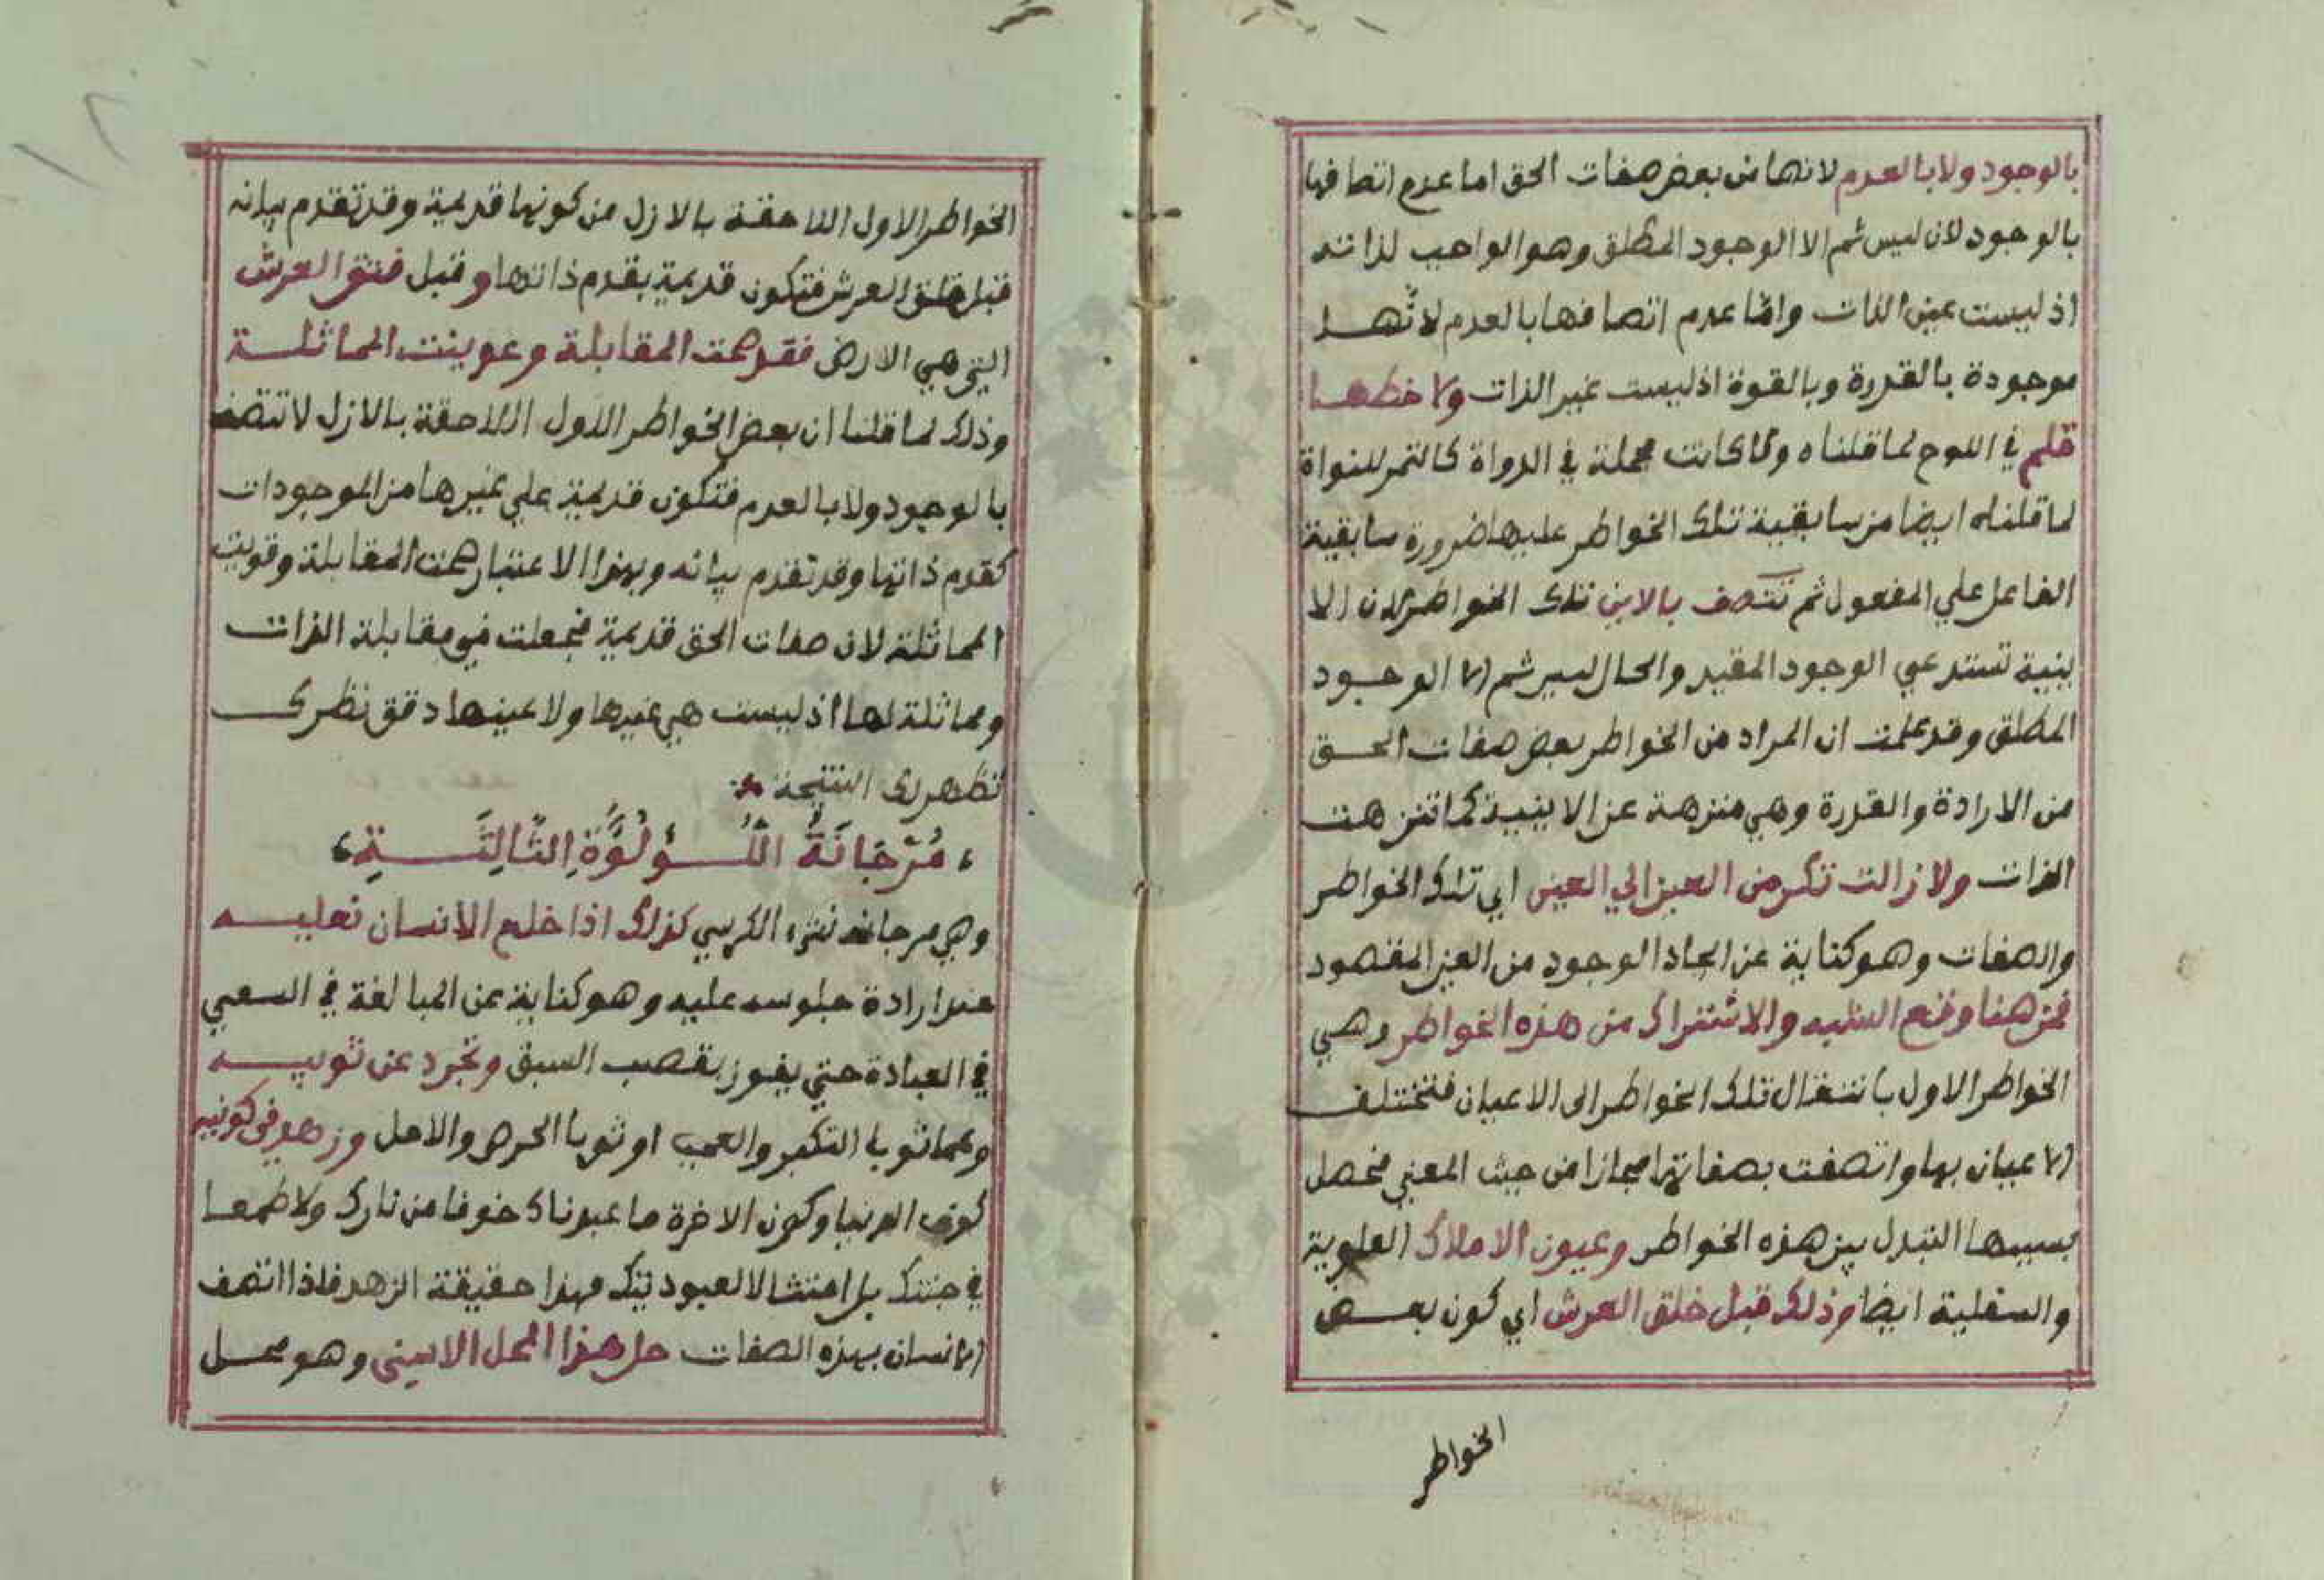 بالوجود ولا بالعدم لانها من بعض صفات الحق اما عدم اتصافها
بالوجود لان ليس ثم الا الوجود المطلق وهو الواجب لذاته
اذ ليست عين الذات واما عدم اتصافها بالعدم لانها
موجودة بالقدرة وبالقوة اذ ليست غير الذات ولا خطها
قلم في اللوح لما قلناه ولا كانت مجملة في الدواة كالتمر للنواة
لما قلناه ايضا من سابقية تلك الخواطر عليها ضرورة سابقية
الفاعل علي المفعول ثم تتصف بالاين تلك الخواطر لان الا
ينية تستدعي الوجود المقيد والحال ليس ثم الا الوجود
المطلق وقد علمت ان المراد من الخواطر بعض صفات الحق
من الارادة والقدرة وهي منزهة عن الاينية كما تنزهت
الذات ولا زالت تكر من العين الي العين اي تلك الخواطر
والصفات وهو كناية عن ايجاد الوجود من العين المقصود
فمن هنا وقع الشبه والاشتراك من هذه الخواطر وهي
الخواطر الاول بانتقال تلك الخواطر الى الاعيان فتختلف
الاعيان بها واتصفت بصفاتها مجازا من حيث المعني فحصل
بسببها التبدل بين هذه الخواطر وعيون الاملاك العلوية
والسفلية ايضا وذلك قبل خلق العرش اي كون بعض
الخواطر
الخواطر الاول اللاحقة بالازل من كونها قديمة وقد تقدم بيانه
قبل خلق العرش فتكون قديمة بقدم ذاتها وقبل فتق العرش
التي هي الارض فقد صحت المقابلة وعوينت المماثلة
وذلك لما قلنا ان بعض الخواطر الاول اللاحقة بالازل لا تتصف
بالوجود ولا بالعدم فتكون قديمة علي غيرها من الموجودات
كقدم ذاتها وقد تقدم بيانه وبهذا الاعتبار صحت المقابلة وقويت
المماثلة لان صفات الحق قديمة فجعلت في مقابلة الذات
ومماثلة لها اذ ليست هي غيرها ولا عينها دقق نظرك
تظهر لك النتيجة
مُرْجَانَةُ اللُّؤْلُؤَةِ الثَّالِثَةِ
وهي مرجانة الكرسي كذلك اذا خلع الانسان نعليه
عند ارادة جلوسه عليه وهو كناية عن المبالغة في السعي
في العبادة حتي يفوز بقصب السبق وتجرد عن ثوبيه
وهما ثوبا التكبر والعجب او ثوبا الحرص والامل وزهد في كونيه
كون الدنيا وكون الاخرة ما عبدناك خوفا من نارك ولا طمعا
في جنتك بل امتثالا لعبوديتك فهذا حقيقة الزهد فاذا اتصف
الانسان بهذه الصفات حل هذا المحل الاسنى وهو محل